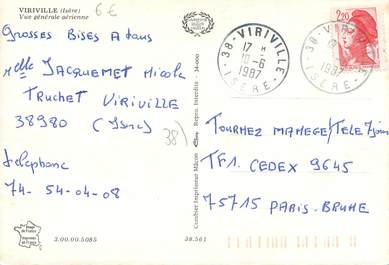 VIRIVILLE (Isère)
Vue générale aérienne
6€
Grosses Bises A tous
Melle JACQUEMET Nicole
TRUCHET VIRIVILLE
38980 (Isère)
38)
telephone
74-54-04-08
3.00.00.5085
Combier Imprimeur Mâcon
Repro. Interdite - 34-000
38.561
38 - VIRIVILLE
17 H
10-6
1987
ISERE
2,20
TOURNEZ MANEGE/TELE 7 jours
TF1 CEDEX 9645
75715 PARIS-BRUNE